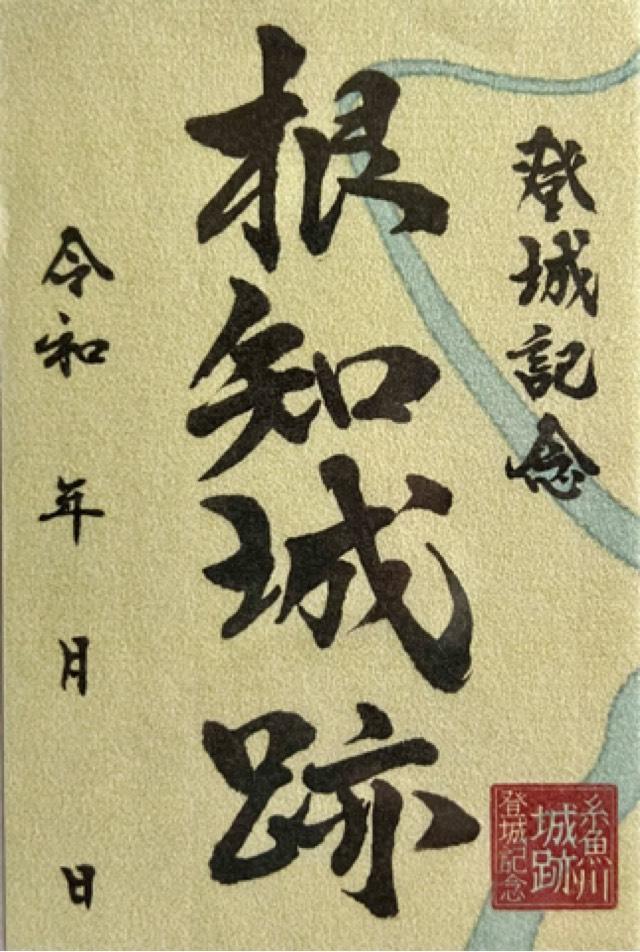 登城記念
根知城跡
令和 年 月 日
糸魚川
城跡
登城記念